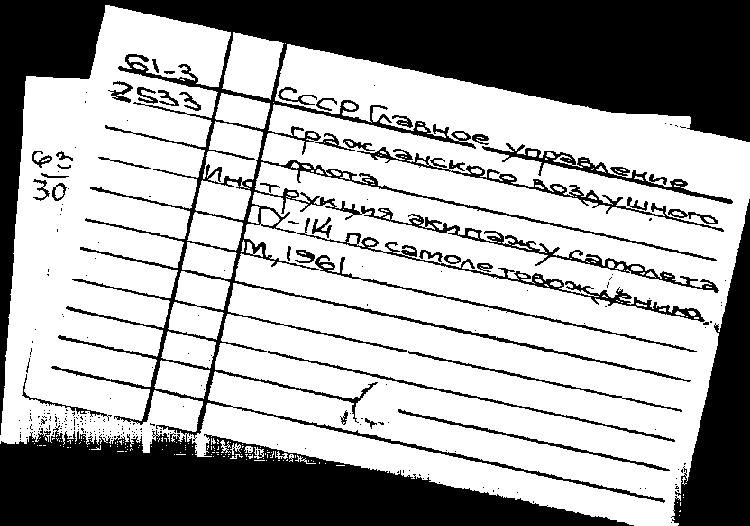 61-3
2533
СССР Главное управление
гражданского воздушного
флота.
Инструкция экипажу самолета
ТУ-114 по самолетовождению.
М., 1961.
63
30